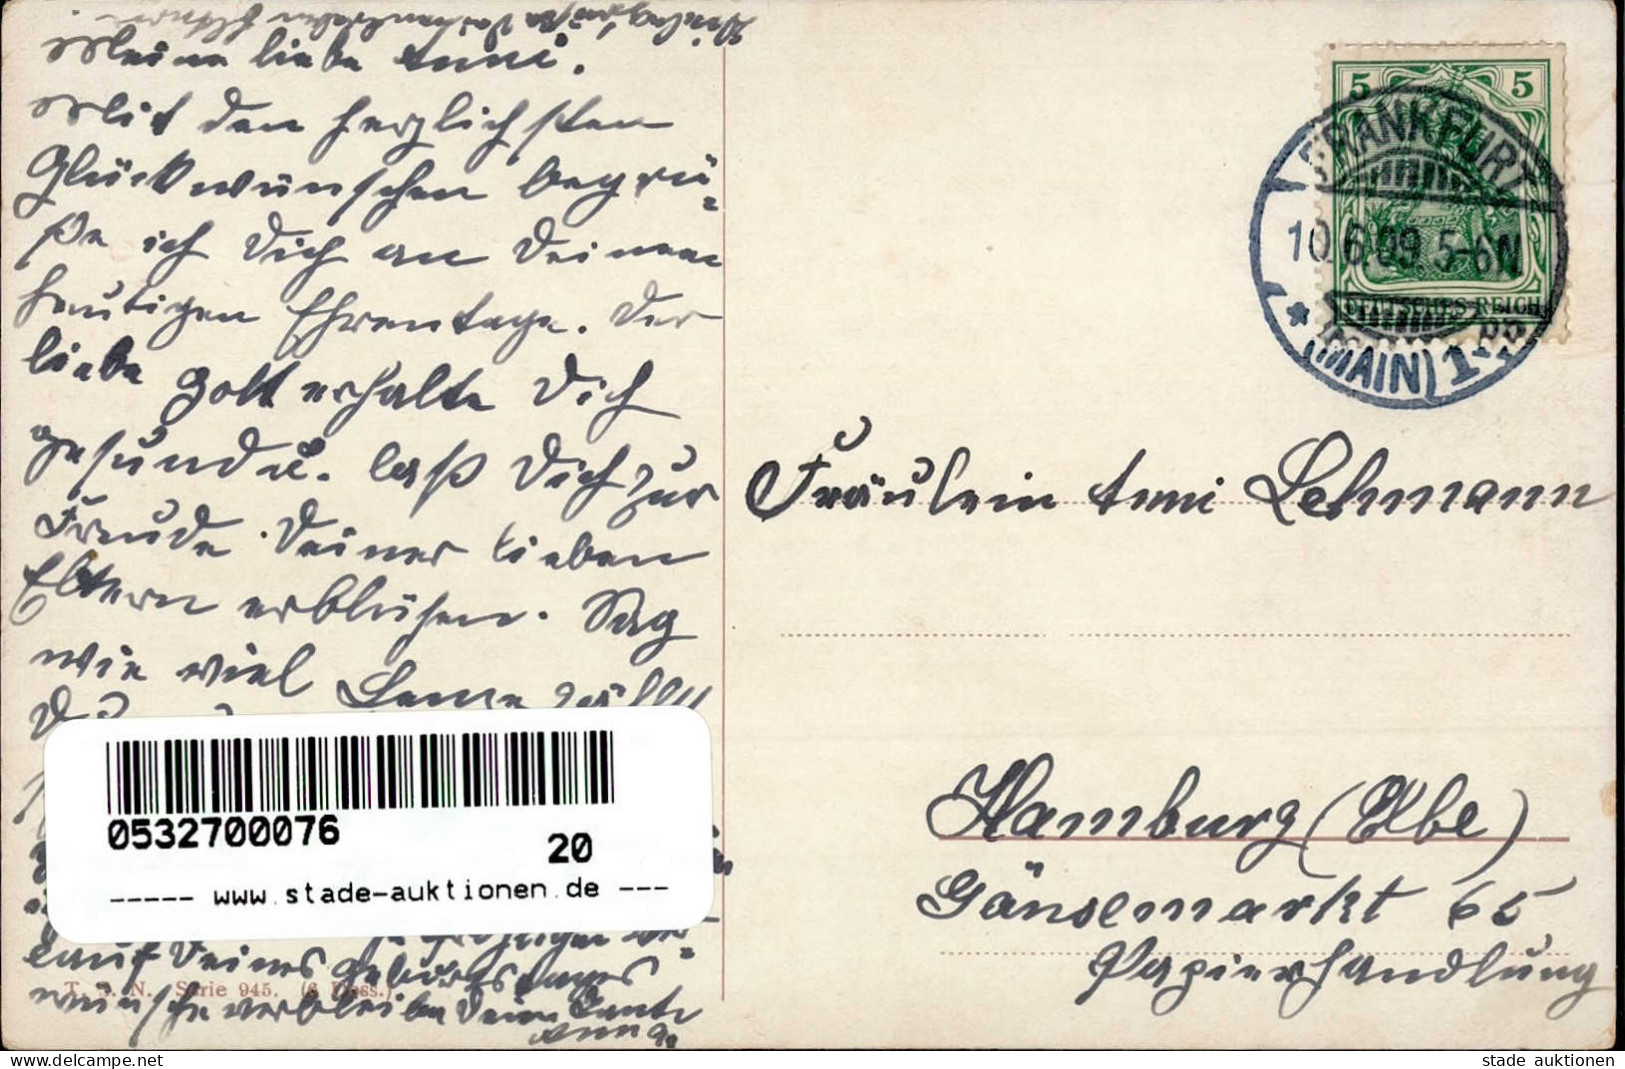 Meine liebe Anni.
Mit den herzlichsten
Glückwünschen begrü-
ße ich Dich an Deinem
heutigen Ehrentage. Der
liebe Gott erhalte Dich
gesund u. laß Dich zur
Freude Deiner lieben
Eltern erblühen. Sag
wie viel Lenze zählst
Du
0532700076
20
----- www.stade-auktionen.de ---
lauf Deines Geburtstages
wünsche verbleibe Deine Tante
Anna.
T. S. N. Serie 945. (6 Dess.)
5 5
DEUTSCHES REICH
FRANKFURT
10.6.09 5-6N
* (MAIN) 1.
Fräulein Anni Lehmann
Hamburg (Elbe)
Gänsemarkt 65
Papierhandlung
www.delcampe.net
stade auktionen